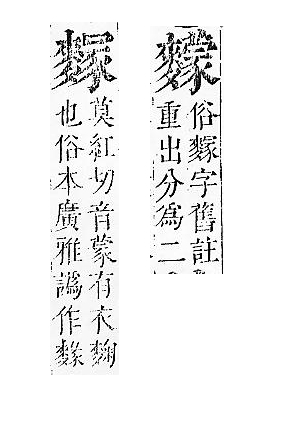 䵆
俗䴿字舊註
重出分爲二
䴿
莫紅切音蒙有衣麴
也俗本廣雅譌作